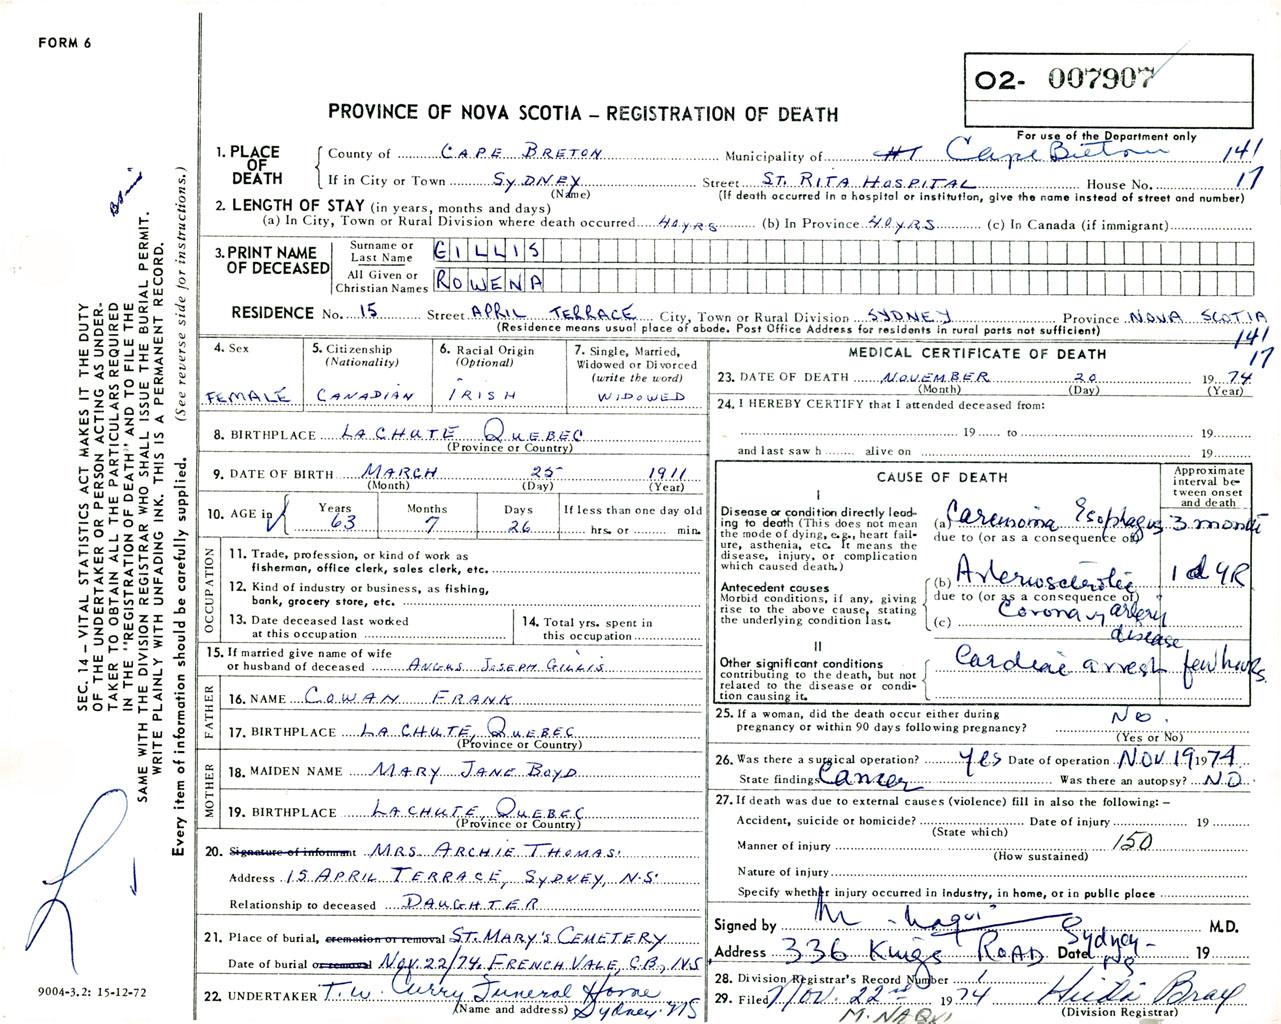 FORM 6
O2- 007907
PROVINCE OF NOVA SCOTIA – REGISTRATION OF DEATH
For use of the Department only
1. PLACE OF DEATH
County of CAPE BRETON Municipality of Cape Breton 141
If in City or Town SYDNEY Street ST. RITA HOSPITAL House No. 17
(Name) (If death occurred in a hospital or institution, give the name instead of street and number)
2. LENGTH OF STAY (in years, months and days)
(a) In City, Town or Rural Division where death occurred 40 YRS (b) In Province 40 YRS (c) In Canada (if immigrant)
3. PRINT NAME OF DECEASED
Surname or Last Name GILLIS
All Given or Christian Names ROWENA
RESIDENCE No. 15 Street APRIL TERRACE City, Town or Rural Division SYDNEY Province NOVA SCOTIA
(Residence means usual place of abode. Post Office Address for residents in rural parts not sufficient)
141
17
4. Sex
FEMALE
5. Citizenship
(Nationality)
CANADIAN
6. Racial Origin
(Optional)
IRISH
7. Single, Married,
Widowed or Divorced
(write the word)
WIDOWED
8. BIRTHPLACE LACHUTE QUEBEC
(Province or Country)
9. DATE OF BIRTH MARCH 25 1911
(Month) (Day) (Year)
10. AGE in
Years Months Days If less than one day old
63 7 26 hrs. or min.
OCCUPATION
11. Trade, profession, or kind of work as
fisherman, office clerk, sales clerk, etc.
12. Kind of industry or business, as fishing,
bank, grocery store, etc.
13. Date deceased last worked
at this occupation
14. Total yrs. spent in
this occupation
15. If married give name of wife
or husband of deceased ANGUS JOSEPH GILLIS
FATHER
16. NAME COWAN FRANK
17. BIRTHPLACE LACHUTE, QUEBEC
(Province or Country)
MOTHER
18. MAIDEN NAME MARY JANE BOYD
19. BIRTHPLACE LACHUTE, QUEBEC
(Province or Country)
20. Signature of informant MRS. ARCHIE THOMAS
Address 15 APRIL TERRACE, SYDNEY, N.S.
Relationship to deceased DAUGHTER
21. Place of burial, cremation or removal ST. MARY'S CEMETERY
Date of burial or removal NOV. 22/74. FRENCH VALE, C.B., N.S
22. UNDERTAKER T.W. Curry Funeral Home
(Name and address) Sydney NS
MEDICAL CERTIFICATE OF DEATH
23. DATE OF DEATH NOVEMBER 20 1974
(Month) (Day) (Year)
24. I HEREBY CERTIFY that I attended deceased from:
19 to 19
and last saw h alive on 19
CAUSE OF DEATH
Approximate
interval be-
tween onset
and death
I
Disease or condition directly lead-
ing to death (This does not mean
the mode of dying, e.g., heart fail-
ure, asthenia, etc. It means the
disease, injury, or complication
which caused death.)
(a) Carcinoma Esophagus 3 months
due to (or as a consequence of)
Antecedent causes
Morbid conditions, if any, giving
rise to the above cause, stating
the underlying condition last.
(b) Arteriosclerotic
due to (or as a consequence of)
(c) Coronary artery
disease
II
Other significant conditions
contributing to the death, but not
related to the disease or condi-
tion causing it.
Cardiac arrest few hours
25. If a woman, did the death occur either during
pregnancy or within 90 days following pregnancy? No.
(Yes or No)
26. Was there a surgical operation? Yes Date of operation NOV. 19 1974
State findings Cancer Was there an autopsy? NO
27. If death was due to external causes (violence) fill in also the following: –
Accident, suicide or homicide? Date of injury 19
(State which)
Manner of injury 150
(How sustained)
Nature of injury
Specify whether injury occurred in industry, in home, or in public place
Signed by M. Naqui M.D.
Address 336 Kings ROAD Sydney NS Date 19
28. Division Registrar's Record Number
29. Filed Nov. 22nd 1974 Heidi Bray
(Division Registrar)
M. NAQVI
SEC. 14 – VITAL STATISTICS ACT MAKES IT THE DUTY
OF THE UNDERTAKER OR PERSON ACTING AS UNDER-
TAKER TO OBTAIN ALL THE PARTICULARS REQUIRED
IN THE "REGISTRATION OF DEATH" AND TO FILE THE
SAME WITH THE DIVISION REGISTRAR WHO SHALL ISSUE THE BURIAL PERMIT.
WRITE PLAINLY WITH UNFADING INK. THIS IS A PERMANENT RECORD.
Every item of information should be carefully supplied. (See reverse side for instructions.)
9004-3.2: 15-12-72